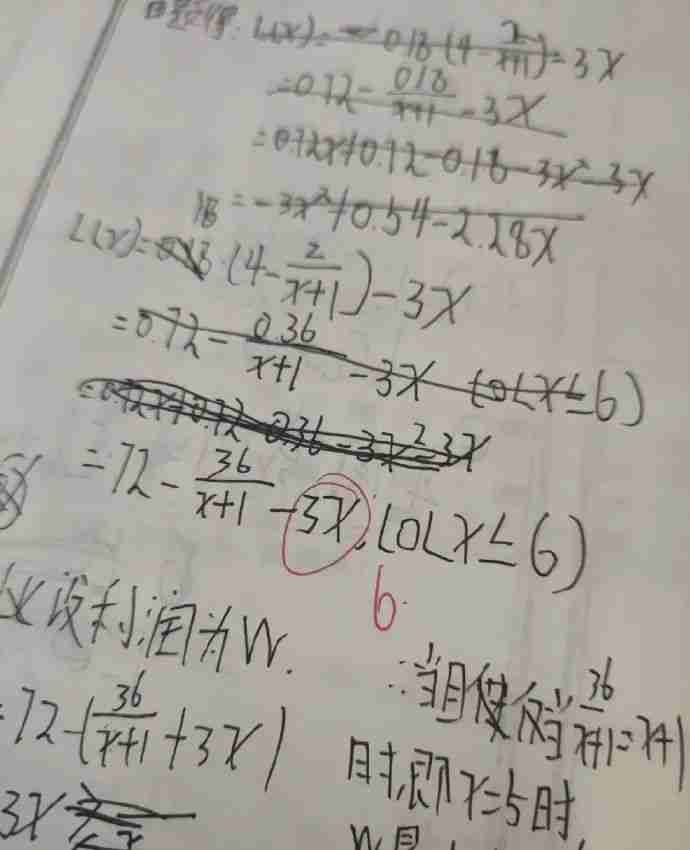 由题得: L(x)= 0.18(4-2/(x+1))-3x
=0.72-0.18/(x+1)-3x
=0.72x+0.72-0.18-3x²-3x
=-3x²+0.54-2.28x
L(x)=18(4-2/(x+1))-3x
=0.72-0.36/(x+1)-3x (0<x≤6)
=0.72x+0.72-0.36-3x²-3x
=72-36/(x+1)-3x,(0<x≤6)
6.
设利润为W.
=72-(36/(x+1)+3x)
3x
∴当且仅当36/(x+1)=x+1
时,即x=5时,